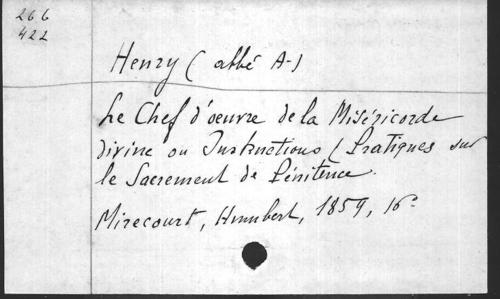 266
422
Henry (abbé A-)
Le Chef d'oeuvre de la Miséricorde
divine ou Instructions (Pratiques sur
le Sacrement de Pénitence.
Mirecourt, Humbert, 1859, 16°